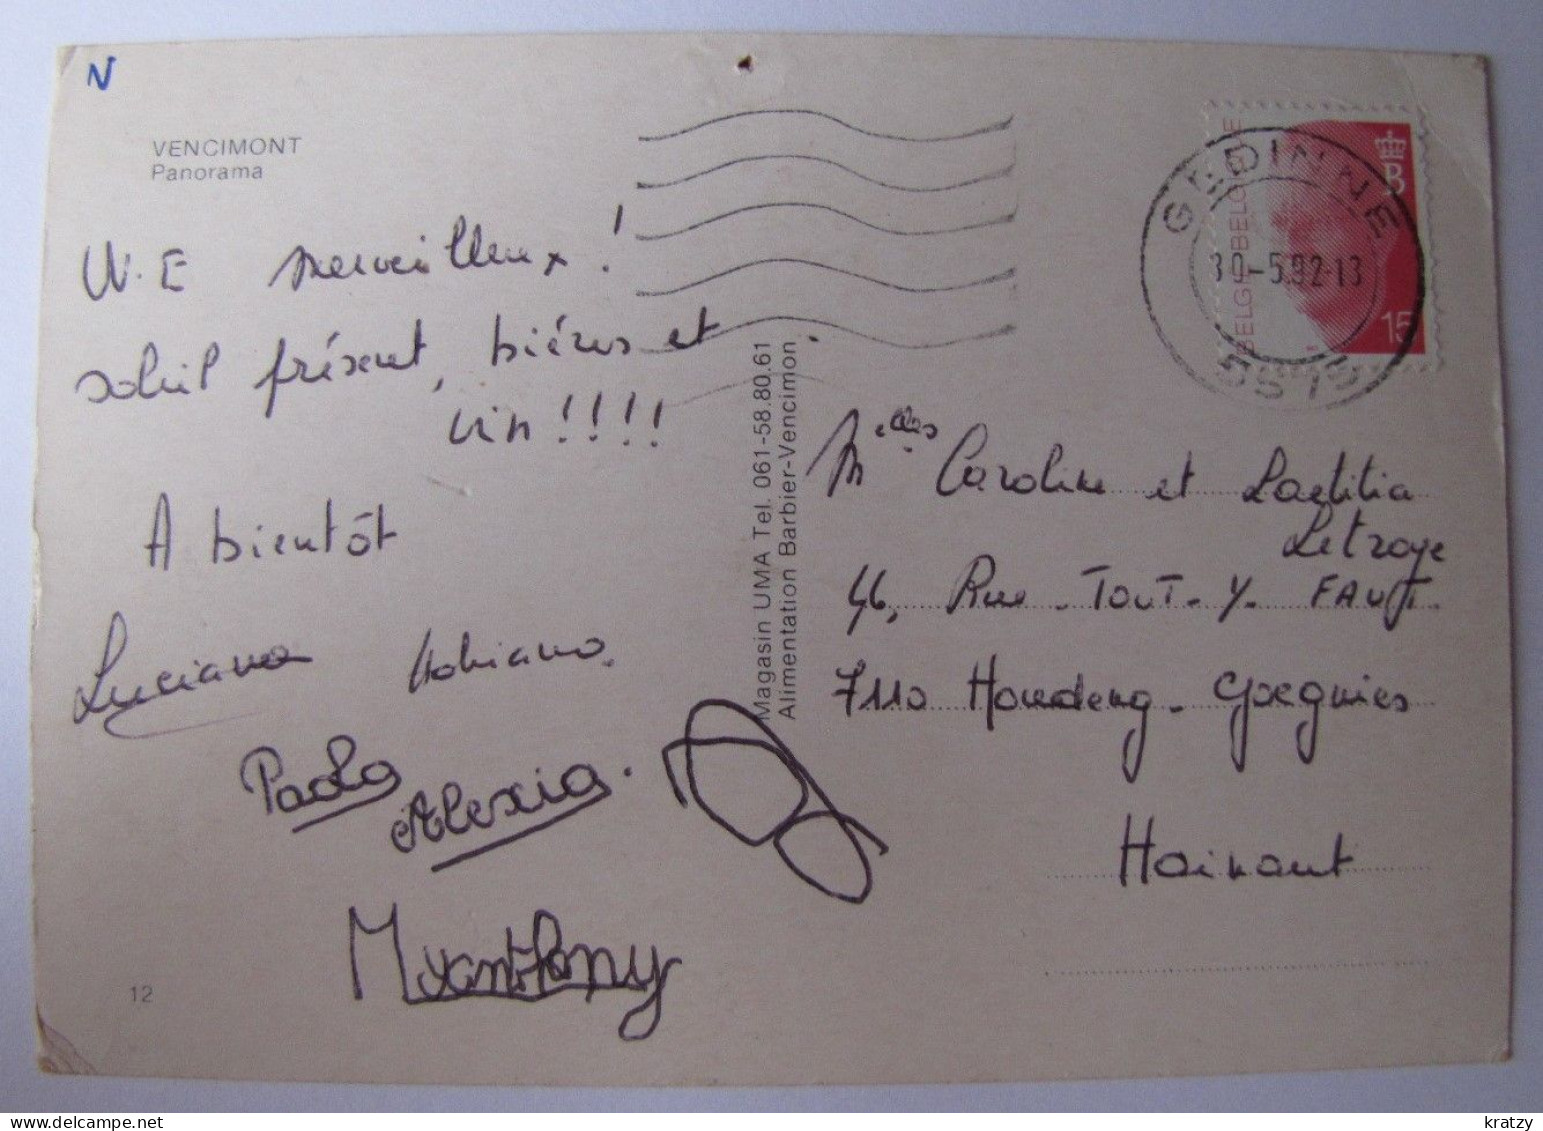 N
VENCIMONT
Panorama
W.E merveilleux !
soleil présent, bières et
vin !!!!
A bientôt
Luciano Adriano.
Paolo
Alexia.
anthony
12
Magasin UMA Tel. 061-58.80.61
Alimentation Barbier-Vencimon
BELGIE-BELGIQUE
B
15
GEDINNE
30-5.92-13
5575
Melles Caroline et Laetitia
Letroye
46, Rue - TOUT - Y - FAUT.
7110 Houdeng - Goegnies
Hainaut
kratzy